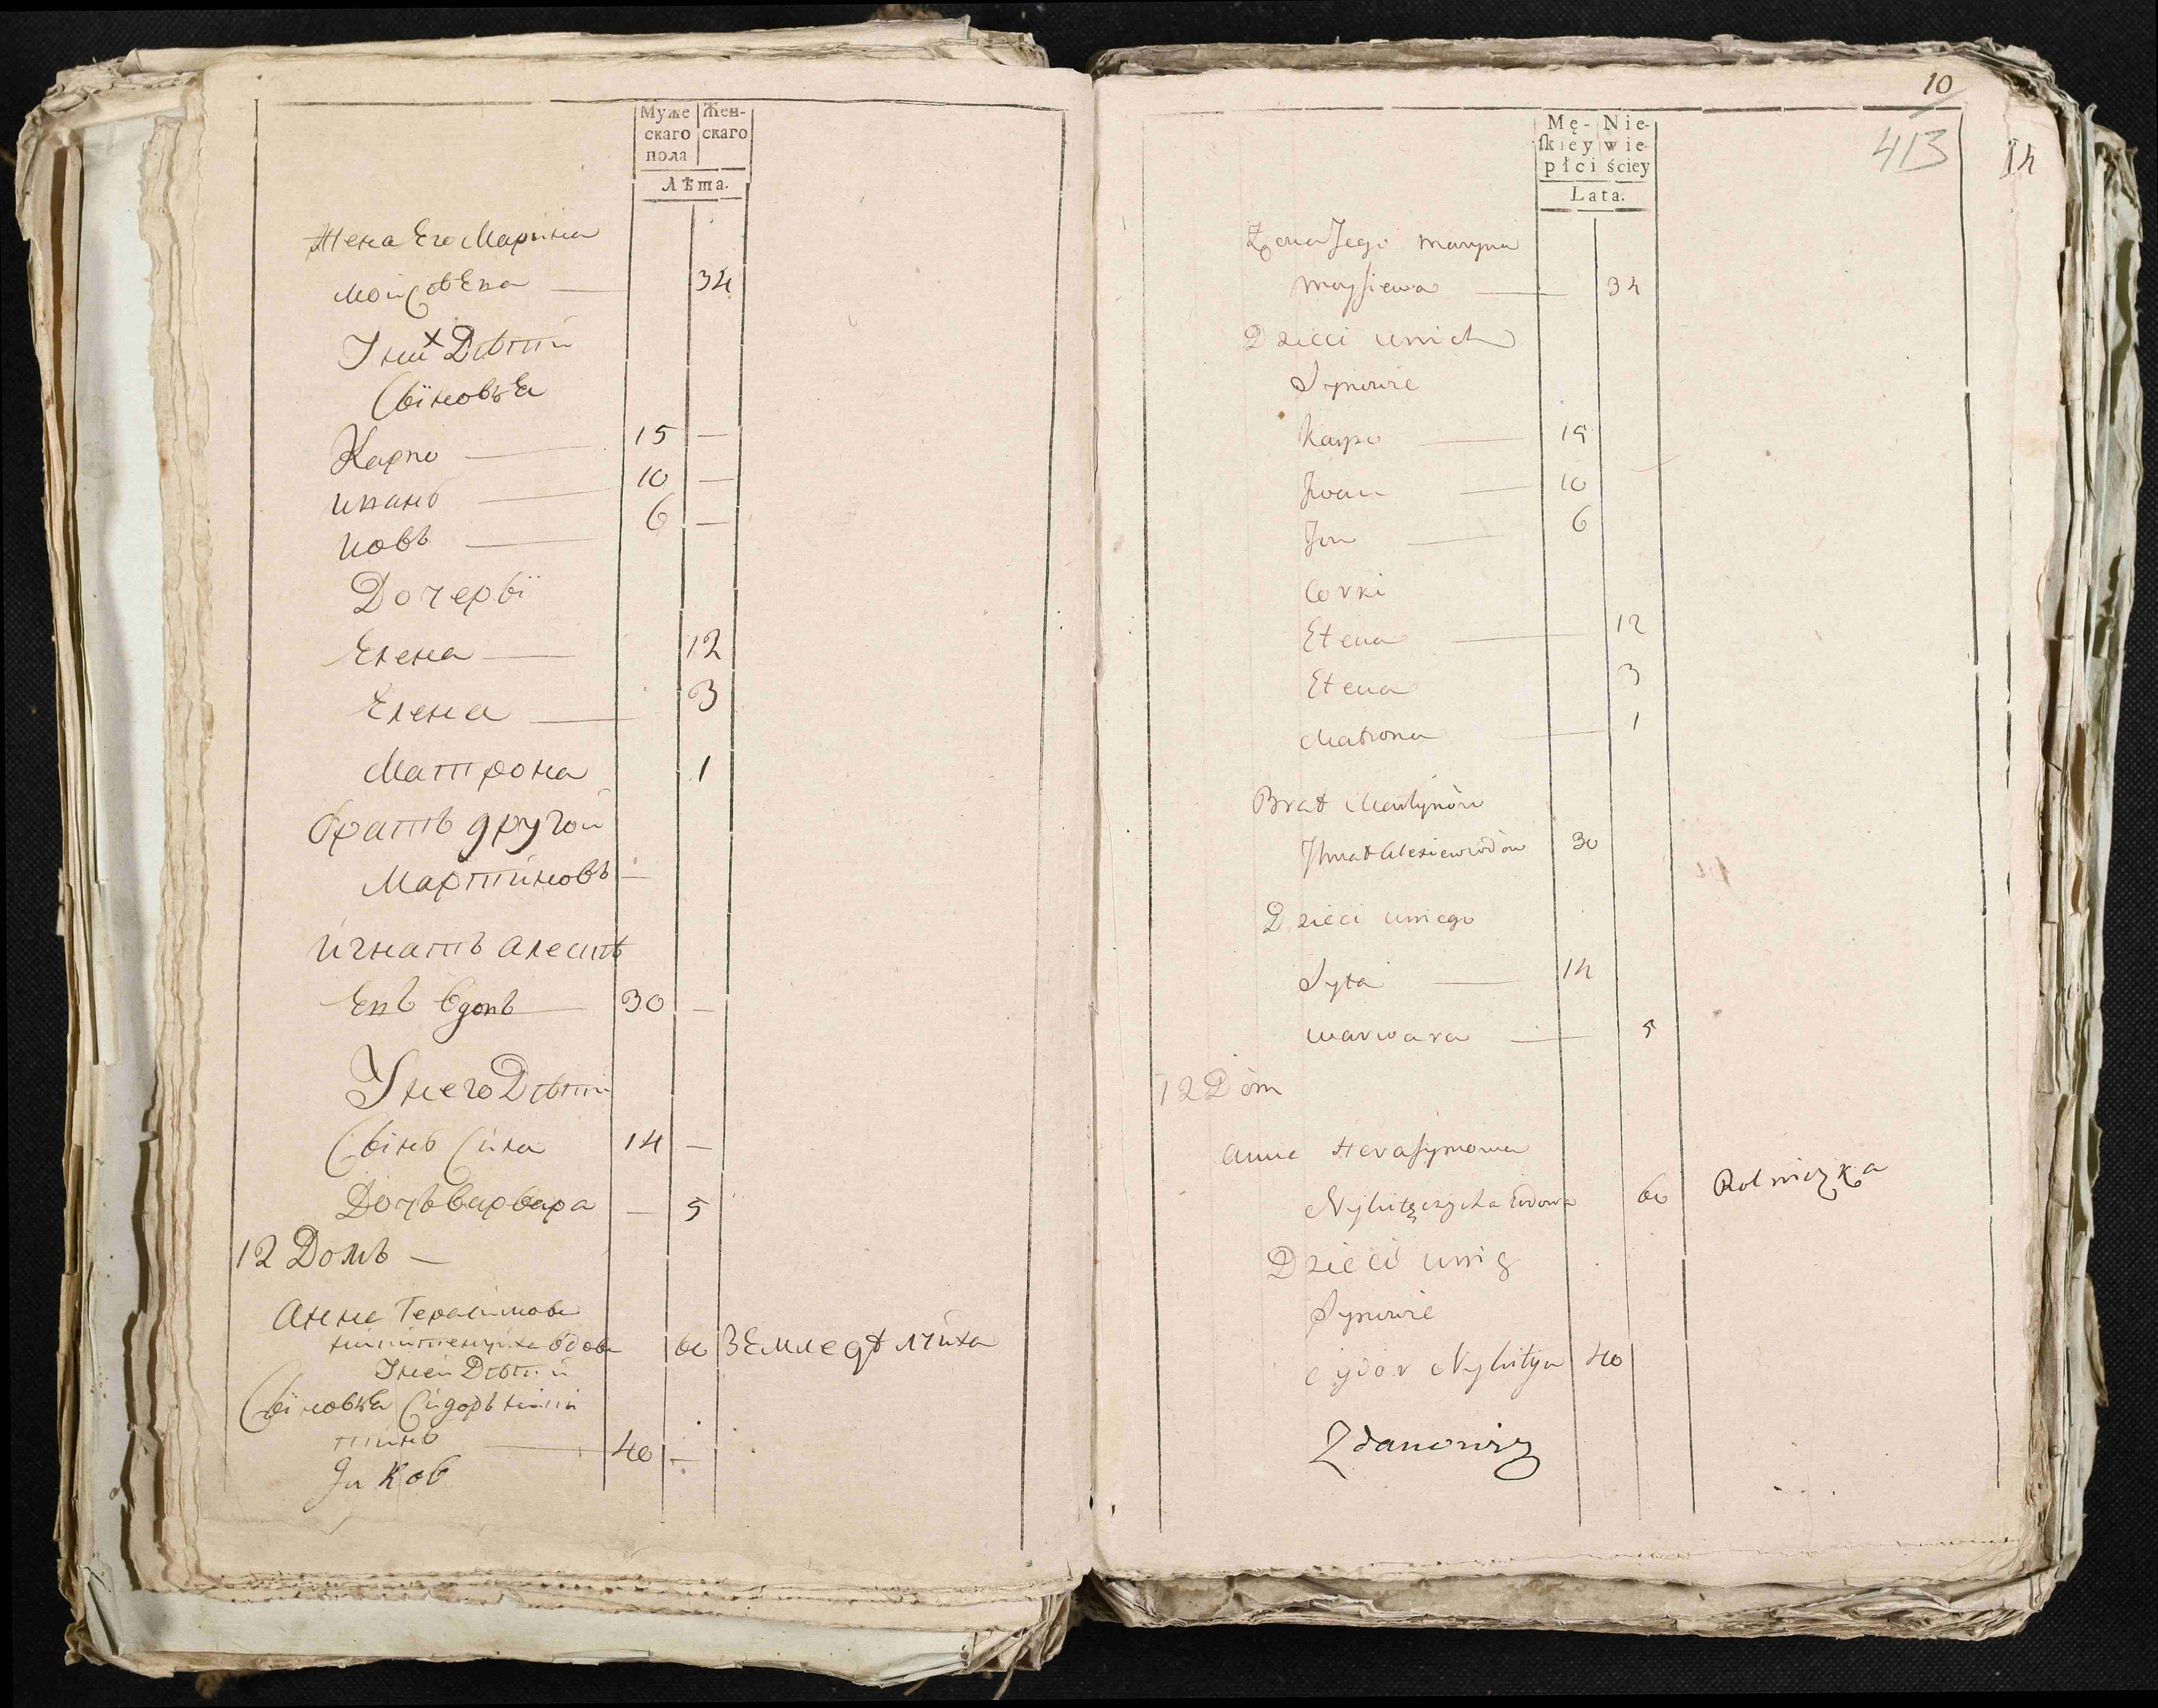 Муже Жен-
скаго скаго
пола
Лѣта.
Жена Его Марина
Мойсѣева — 34
У них Дѣтей
Сыновья
Карпо — 15 —
иванъ — 10 —
иовъ — 6 —
Дочеры
Елена — 12
Елена — 3
Матрона 1
братъ другой
Мартиновъ —
игнатъ алексѣ
Евъ вдовъ — 30 —
У него Дѣтей
Сынъ 14 —
Дочъ варвара — 5
12 Домъ —
Анна Герасимова
вдова 60 Земледѣлчиха
У ней Дѣтей
Сыновья Сидоръ
— 40 —
10
413
14
Mę- Nie-
ſkiey wie-
płci ściey
Lata.
Żona Jego Maryna
Moysiewa — 34
Dzieci u nich
Synowie
Karpo — 15
Jwan — 10
Jow — 6
Corki
Elena — 12
Elena — 3
Matrona — 1
Brat Martynów
Jhnat Alexiew wdow 30
Dzieci u niego
Syła — 14
Warwara — 5
12 Dom
Anna Herasymowa
wdowa 60 Rolniczka
Dzieci u niey
Synowie
Cydor Nykityn 40
Zdanowicz